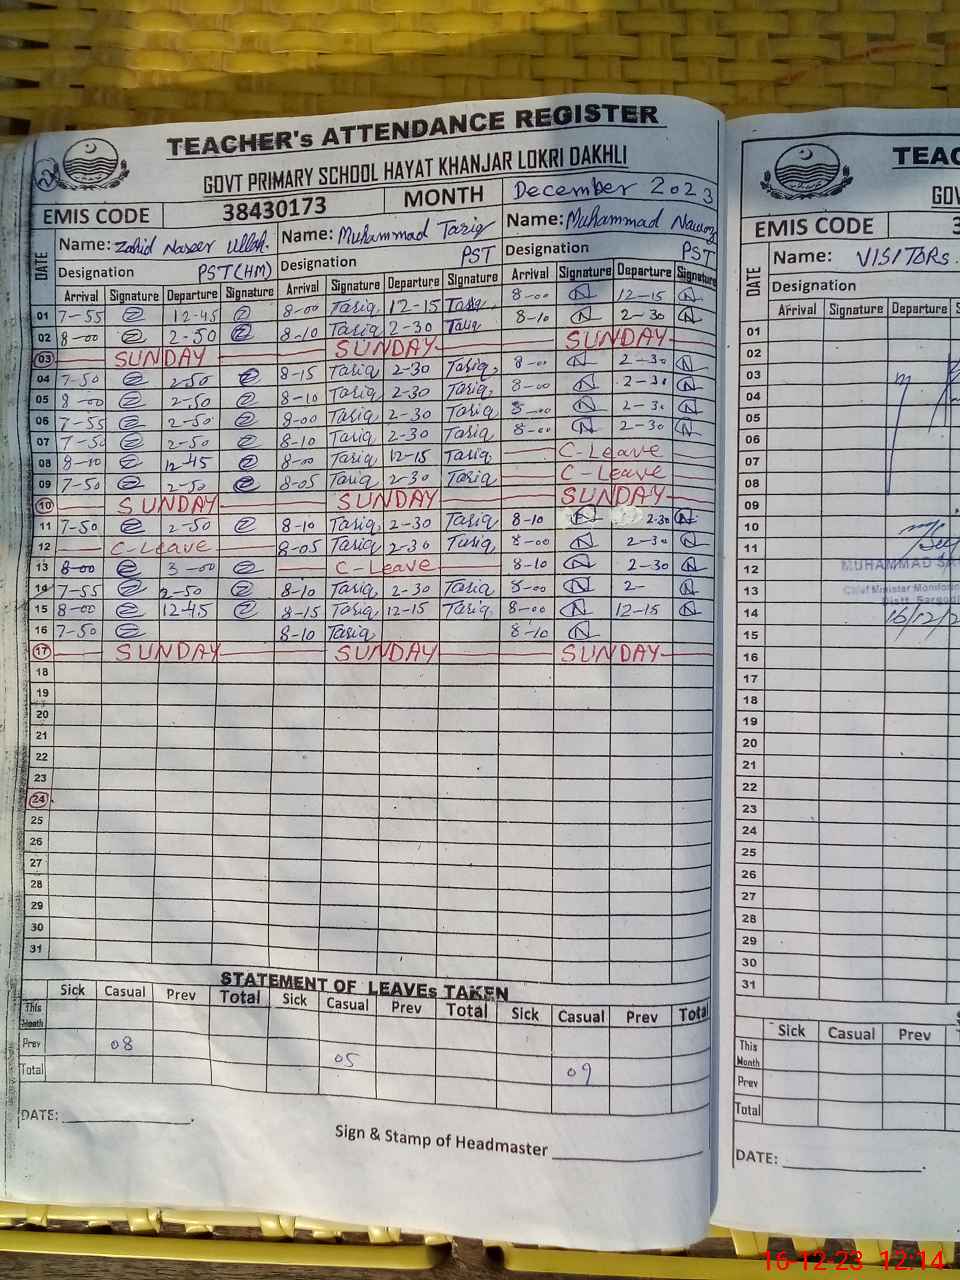 TEACHER's ATTENDANCE REGISTER
GOVT PRIMARY SCHOOL HAYAT KHANJAR LOKRI DAKHLI
EMIS CODE 38430173 MONTH December 2023
DATE Name: Zahid Naseer Ullah. Name: Muhammad Tariq Name: Muhammad Nawaz
Designation PST(HM) Designation PST Designation PST
Arrival Signature Departure Signature Arrival Signature Departure Signature Arrival Signature Departure Signature
01 7-55 12-45 8-00 Tariq 12-15 Tariq 8-00 N 12-15 N
02 8-00 2-50 8-10 Tariq 2-30 Tariq 8-10 N 2-30 N
03 SUNDAY SUNDAY SUNDAY
04 7-50 2-50 8-15 Tariq 2-30 Tariq 8-00 N 2-30 N
05 8-00 2-50 8-10 Tariq 2-30 Tariq 8-00 N 2-30 N
06 7-55 2-50 8-00 Tariq 2-30 Tariq 8-00 N 2-30 N
07 7-50 2-50 8-10 Tariq 2-30 Tariq 8-00 N 2-30 N
08 8-10 12-45 8-00 Tariq 12-15 Tariq C-Leave
09 7-50 2-50 8-05 Tariq 2-30 Tariq C-Leave
10 SUNDAY SUNDAY SUNDAY
11 7-50 2-50 8-10 Tariq 2-30 Tariq 8-10 N 2-30 N
12 C-Leave 8-05 Tariq 2-30 Tariq 8-00 N 2-30 N
13 8-00 3-00 C-Leave 8-10 N 2-30 N
14 7-55 2-50 8-10 Tariq 2-30 Tariq 8-00 N 2- N
15 8-00 12-45 8-15 Tariq 12-15 Tariq 8-00 N 12-15 N
16 7-50 8-10 Tariq 8-10 N
17 SUNDAY SUNDAY SUNDAY
18
19
20
21
22
23
24
25
26
27
28
29
30
31
STATEMENT OF LEAVEs TAKEN
Sick Casual Prev Total Sick Casual Prev Total Sick Casual Prev Total
This Month
Prev 08 05 09
Total
DATE:
Sign & Stamp of Headmaster
TEAC
GOV
EMIS CODE 3
DATE Name: VISITORS.
Designation
Arrival Signature Departure S
01
02
03
04
05
06
07
08
09
10
11
12
13
14
15
16
17
18
19
20
21
22
23
24
25
26
27
28
29
30
31
MUHAMMAD SA
Chief Minister Monitor
Distt. Sargod
16/12/2
Sick Casual Prev
This Month
Prev
Total
DATE:
16-12-23 12:14